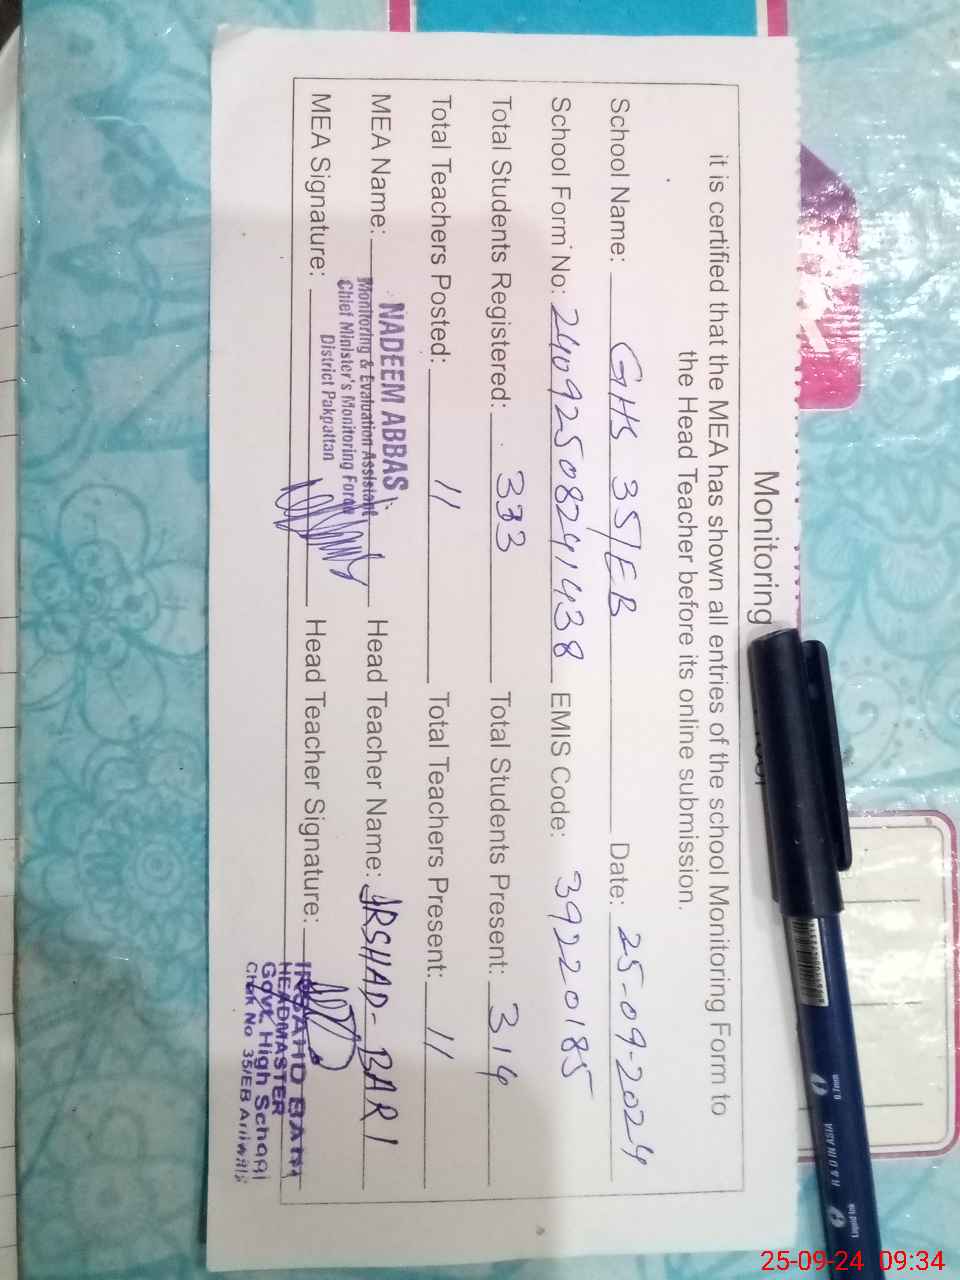 Monitoring
it is certified that the MEA has shown all entries of the school Monitoring Form to
the Head Teacher before its online submission.
School Name: GHS 35/EB Date: 25-09-2024
School Form No: 24092508241438 EMIS Code: 39220185
Total Students Registered: 333 Total Students Present: 314
Total Teachers Posted: 11 Total Teachers Present: 11
MEA Name: Head Teacher Name: IRSHAD-BARI
NADEEM ABBAS
Monitoring & Evaluation Assistant
Chief Minister's Monitoring Force
District Pakpattan
MEA Signature: Head Teacher Signature:
HEADMASTER
Govt. High School
Chak No 35/EB Ariiwala
25-09-24 09:34